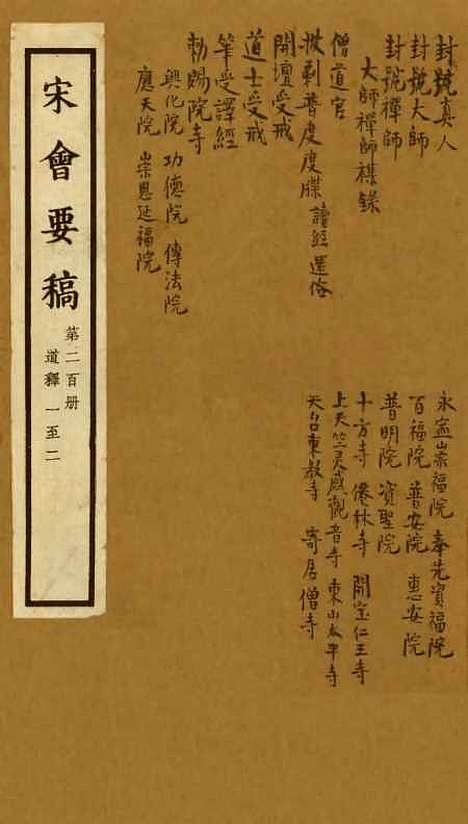 封號真人
封號大師
封號禪師
大師禪師襍錄
僧道官
披剃普度度牒 讀經還俗
開壇受戒
道士受戒
筆受譯經
勅賜院寺
興化院 功德院 傳法院
應天院 崇恩延福院
永寍崇福院 奉先資福院
百福院 普安院 惠安院
普明院 寳聖院
十方寺 儤林寺 開宝仁王寺
上天竺灵感觀音寺 東山太平寺
天台東教寺 寄居僧寺
宋會要稿
第二百册
道釋 一至二